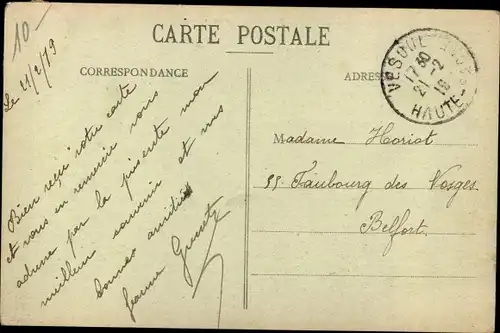 10-
CARTE POSTALE
CORRESPONDANCE
ADRESSE
VESOUL
17 30
21 - 2
HAUTE-
Le 21/2/19
Bien reçu votre carte
et vous en remercie vous
adresse par la présente mon
meilleur souvenir et mes
bonnes amitiés
Madame Horiot
55 Faubourg des Vosges
Belfort.